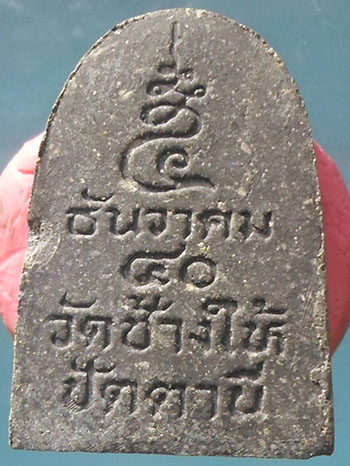 ธันวาคม
๘๐
วัดช้างให้
ปัตตานี